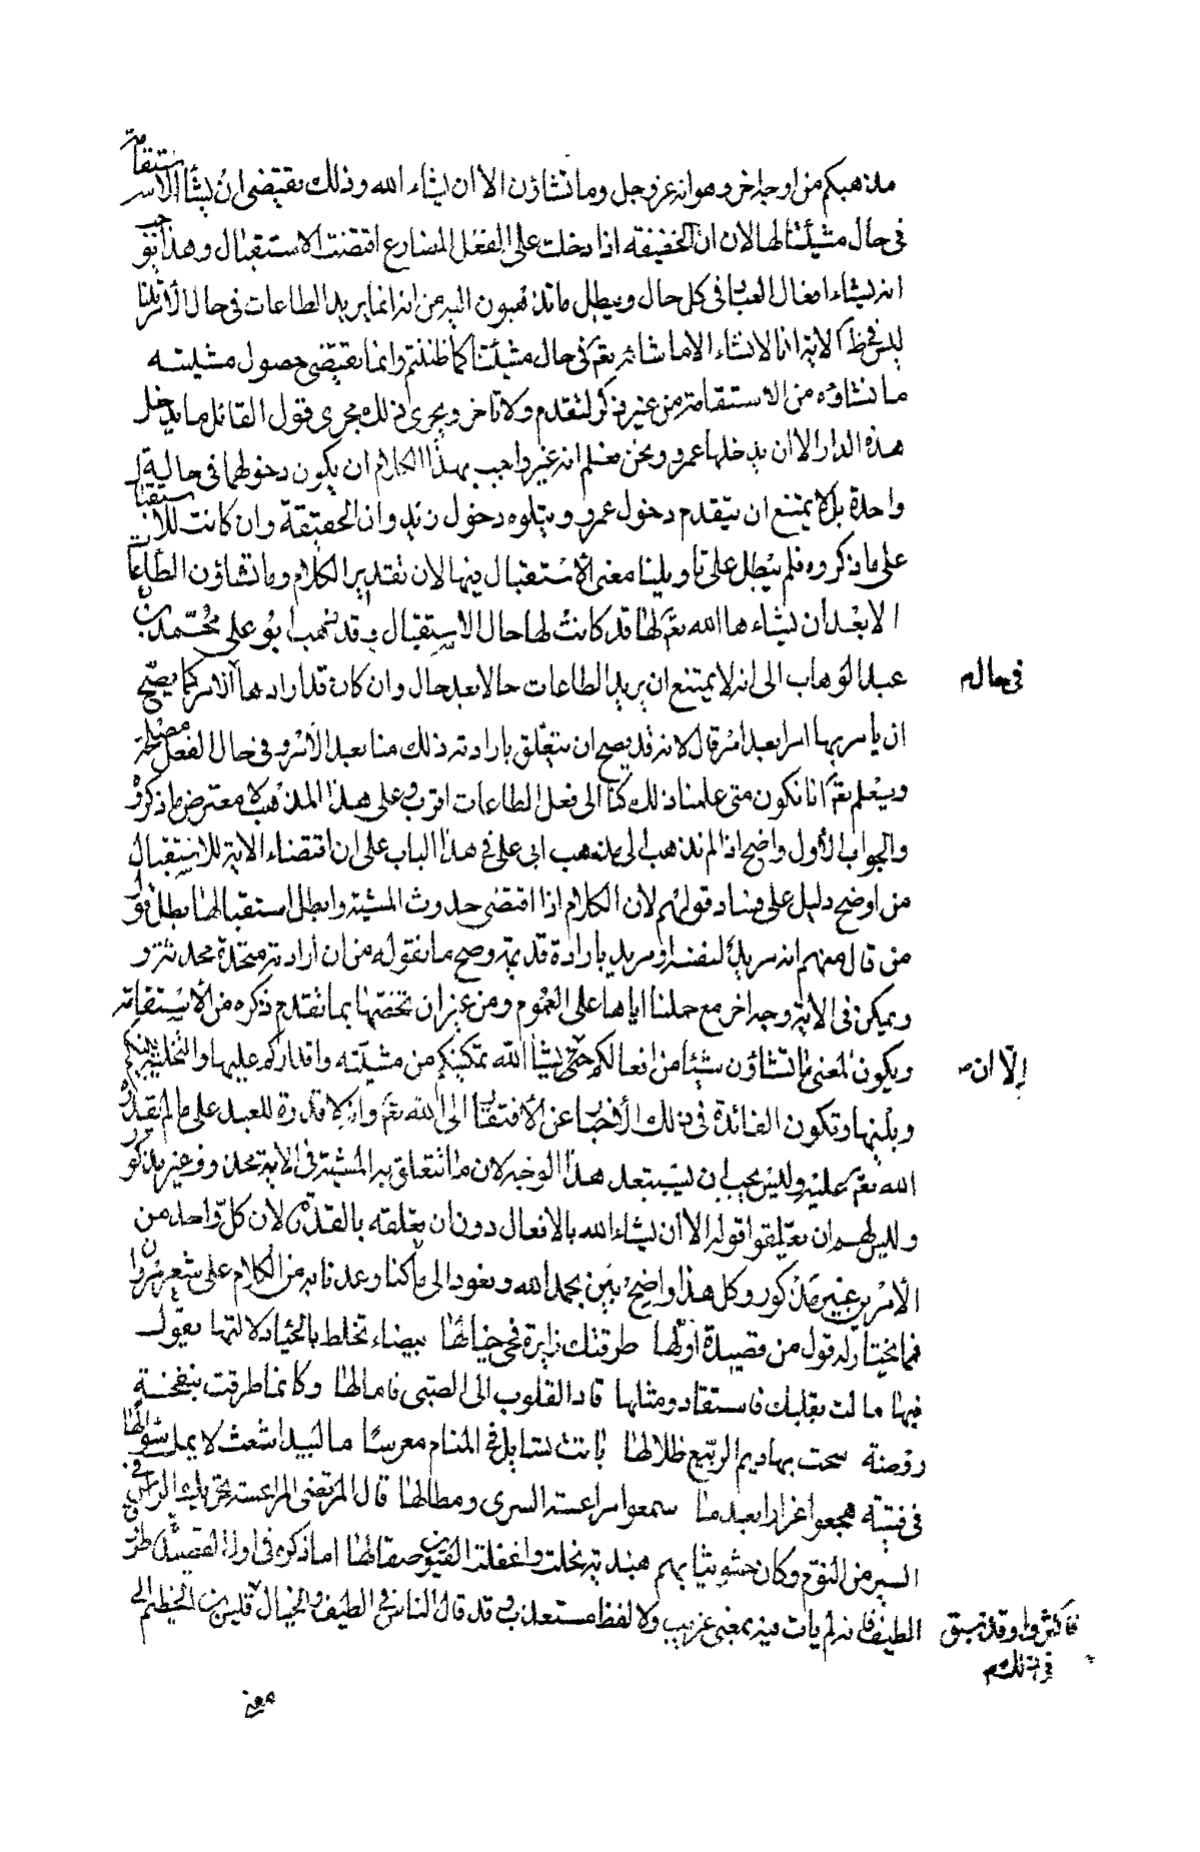 مذهبكم من اوجه اخر وهو انه عز وجل وما تشاؤن الا ان يشاء الله وذلك يقتضى ان يشأ الاستقامة
فى حال مشيئتنا لها لان ان الخفيفة اذا دخلت على الفعل المضارع اقتضت الاستقبال وهذا يوجب
انه يشاء افعال العباد فى كل حال ويبطل ما تذهبون اليه من انه انما يريد الطاعات فى حال الامر قلنا
ليس فى ظ الاية انا لا نشاء الا ما شائه تع فى حال مشيئتنا كما ظننتم وانما يقتضى حصول مشيئته
ما نشاؤه من الاستقامة من غير ذكر لتقدم ولا تاخر ويجرى ذلك مجرى قول القائل ما يدخل
هذه الدار الا ان يدخلها عمرو ونحن نعلم انه غير واجب بهذا الكلام ان يكون دخولهما فى حالة
واحدة بل لا يمتنع ان يتقدم دخول عمرو ويتلوه دخول زيد وان الخفيفة وان كانت للاستقبال
على ما ذكروه فلم يبطل على تاويلنا معنى الاستقبال فيها لان تقدير الكلام وما تشاؤن الطاعات
الا بعد ان يشاء ها الله تع لها قد كانت لها حال الاستقبال و قد ذهب ابو على محمد بن
عبد الوهاب الى انه لا يمتنع ان يريد الطاعات حالا بعد حال وان كان قد ارادها الامر كما يصح
فى حال م
ان يامر بها امرا بعد امر قال لانه قد يصح ان يتعلق بارادته ذلك منا بعد الامر وفى حال الفعل مصلحة
ويعلم تع انا نكون متى علمنا ذلك كنا الى فعل الطاعات اقرب وعلى هذا المذهب لا معترض ما ذكروه
والجواب الاول واضح اذا لم نذهب الى مذهب ابى على فى هذا الباب على ان اقتضاء الاية للاستقبال
من اوضح دليل على فساد قولهم لان الكلام اذا اقتضى حدوث المشية وابطل استقبالها بطل قول
من قال منهم انه مريد لنفسه او مريد بارادة قديمة وصح ما نقوله من ان ارادته متجددة محدثة و
ويمكن فى الاية وجه اخر مع حملنا اياها على العموم ومن غير ان نخصها بما تقدم ذكره من الاستقامة
ويكون المعنى ما تشاؤن شيئا من افعالكم حتى يشأ الله تمكينكم من مشيئته واقداركم عليها والتخلية بينكم
الا ان ص
وبينها وتكون الفائدة فى ذلك الاخبار عن الافتقار الى الله تع وانه لا قدرة للعبد على ما لم يقدره
الله تع عليه وليس يجب ان يستبعد هذا الوجه لان ما تتعلق به المشية فى الاية محذوف غير مذكور
وليس لهم ان يعلقوا قوله الا ان يشاء الله بالافعال دون ان يعلقه بالقدرة لان كل واحد من
الامرين غير مذكور وكل هذا واضح بين بحمد الله ونعود الى ما كنا وعدنا به من الكلام على شعر مروان
فما يختار له قول من قصيدة اولها طرقتك زايرة فحى خيالها بيضاء تخلط بالحياء دلالتها يقول
فيها مالت بقلبك فاستقاد ومثلها قاد القلوب الى الصبى فامالها وكانما طرقت بنفحة
روضة سحت بها ديم الربيع ظلالها باتت تسايل فى المنام معرسا بالبيد اشعث لا يمل سؤالها
فى فتية هجعوا غرارا بعد ما سمعوا مراعشة السرى ومطالها قال المرتضى المراعشة تحريك الراس فى
السير من النوم وكان حشو ثيابهم هندية نحلت واغفلت القيون صقالها اما ذكره فى اول القصيدة طرق
الطيف فانه لم يات فيه بمعنى غريب ولا لفظ مستعذب و قد قال الناس فى الطيف والخيال قليس بن الخطيم الى
فاكثروا وقد سبق
فى ذلك م
معنى